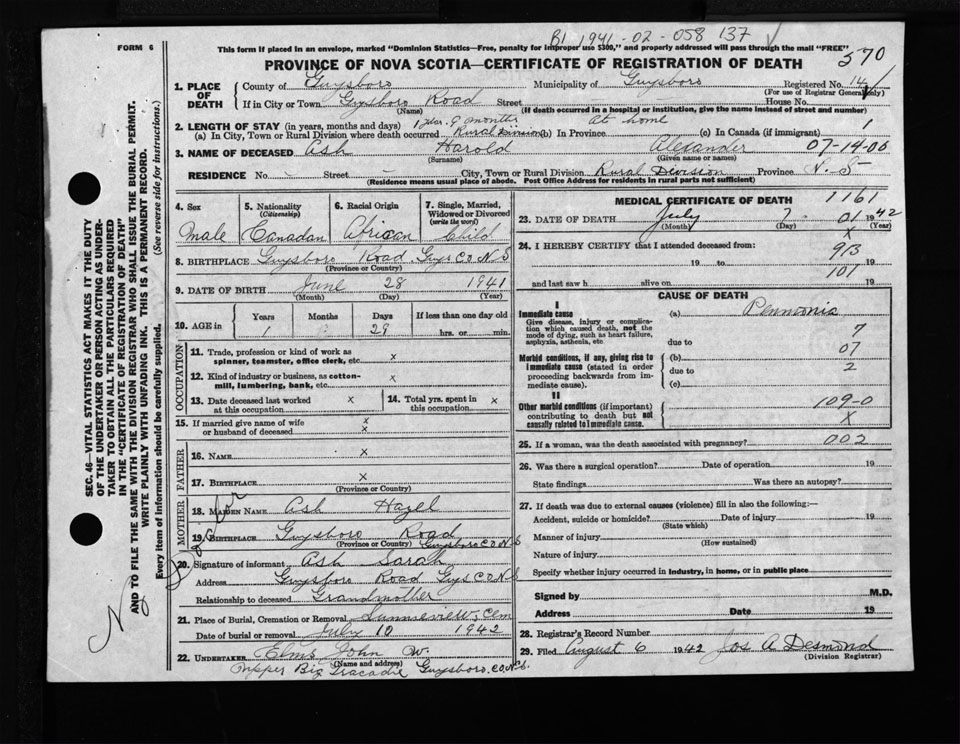 B1 1941-02-058 137
FORM 6
This form if placed in an envelope, marked "Dominion Statistics—Free, penalty for improper use $300," and properly addressed will pass through the mail "FREE"
PROVINCE OF NOVA SCOTIA—CERTIFICATE OF REGISTRATION OF DEATH
570
1. PLACE OF DEATH
County of Guysboro Municipality of Guysboro Registered No. 14
(For use of Registrar General only)
If in City or Town Guysboro Road Street House No.
(Name) (If death occurred in a hospital or institution, give the name instead of street and number)
2. LENGTH OF STAY (in years, months and days) 1 year 9 months At home 1
(a) In City, Town or Rural Division where death occurred Rural Division (b) In Province (c) In Canada (if immigrant)
3. NAME OF DECEASED Ash Harold Alexander 07-14-00
(Surname) (Given name or names)
RESIDENCE No. - Street - City, Town or Rural Division Rural Division Province N.S
(Residence means usual place of abode. Post Office Address for residents in rural parts not sufficient)
4. Sex
5. Nationality (Citizenship)
6. Racial Origin
7. Single, Married, Widowed or Divorced (write the word)
Male Canadan African Child
8. BIRTHPLACE Guysboro Road Guys CO N S
(Province or Country)
9. DATE OF BIRTH June 28 1941
(Month) (Day) (Year)
10. AGE in
Years Months Days If less than one day old
1 29 hrs. or min.
OCCUPATION
11. Trade, profession or kind of work as spinner, teamster, office clerk, etc. x
12. Kind of industry or business, as cotton-mill, lumbering, bank, etc. x
13. Date deceased last worked at this occupation x
14. Total yrs. spent in this occupation x
15. If married give name of wife or husband of deceased x x
FATHER
16. NAME x
17. BIRTHPLACE x
(Province or Country)
MOTHER
18. MAIDEN NAME Ash Hazel
19. BIRTHPLACE Guysboro Road
(Province or Country) Guysboro CO N S
20. Signature of informant Ash Sarah
Address Guysboro Road Guys CO N S
Relationship to deceased Grandmother
21. Place of Burial, Cremation or Removal Sunnieview Cem
Date of burial or removal July 10 1942
22. UNDERTAKER Elms John W.
(Name and address)
Upper Big Tracadie Guysboro. CO. N.S.
MEDICAL CERTIFICATE OF DEATH
1161
23. DATE OF DEATH July 7 01 1942
(Month) (Day) (Year)
x
24. I HEREBY CERTIFY that I attended deceased from:
913
19 to 19
101
and last saw h alive on 19
CAUSE OF DEATH
I
Immediate cause
Give disease, injury or complication which caused death, not the mode of dying, such as heart failure, asphyxia, asthenia, etc.
(a) Pennmonia
7
due to
07
Morbid conditions, if any, giving rise to immediate cause (stated in order proceeding backwards from immediate cause).
(b) 2
due to
(c)
II
Other morbid conditions (if important) contributing to death but not causally related to immediate cause.
109-0
x
25. If a woman, was the death associated with pregnancy? 002
26. Was there a surgical operation? Date of operation 19
State findings Was there an autopsy?
27. If death was due to external causes (violence) fill in also the following:—
Accident, suicide or homicide? Date of injury 19
(State which)
Manner of injury
(How sustained)
Nature of injury
Specify whether injury occurred in industry, in home, or in public place
Signed by M.D.
Address Date 19
28. Registrar's Record Number
29. Filed August 6 1942 Jos A Desmond
(Division Registrar)
SEC. 46—VITAL STATISTICS ACT MAKES IT THE DUTY
OF THE UNDERTAKER OR PERSON ACTING AS UNDERTAKER TO OBTAIN ALL THE PARTICULARS REQUIRED
IN THE "CERTIFICATE OF REGISTRATION OF DEATH"
AND TO FILE THE SAME WITH THE DIVISION REGISTRAR WHO SHALL ISSUE THE BURIAL PERMIT.
WRITE PLAINLY WITH UNFADING INK. THIS IS A PERMANENT RECORD.
Every item of information should be carefully supplied. (See reverse side for instructions.)